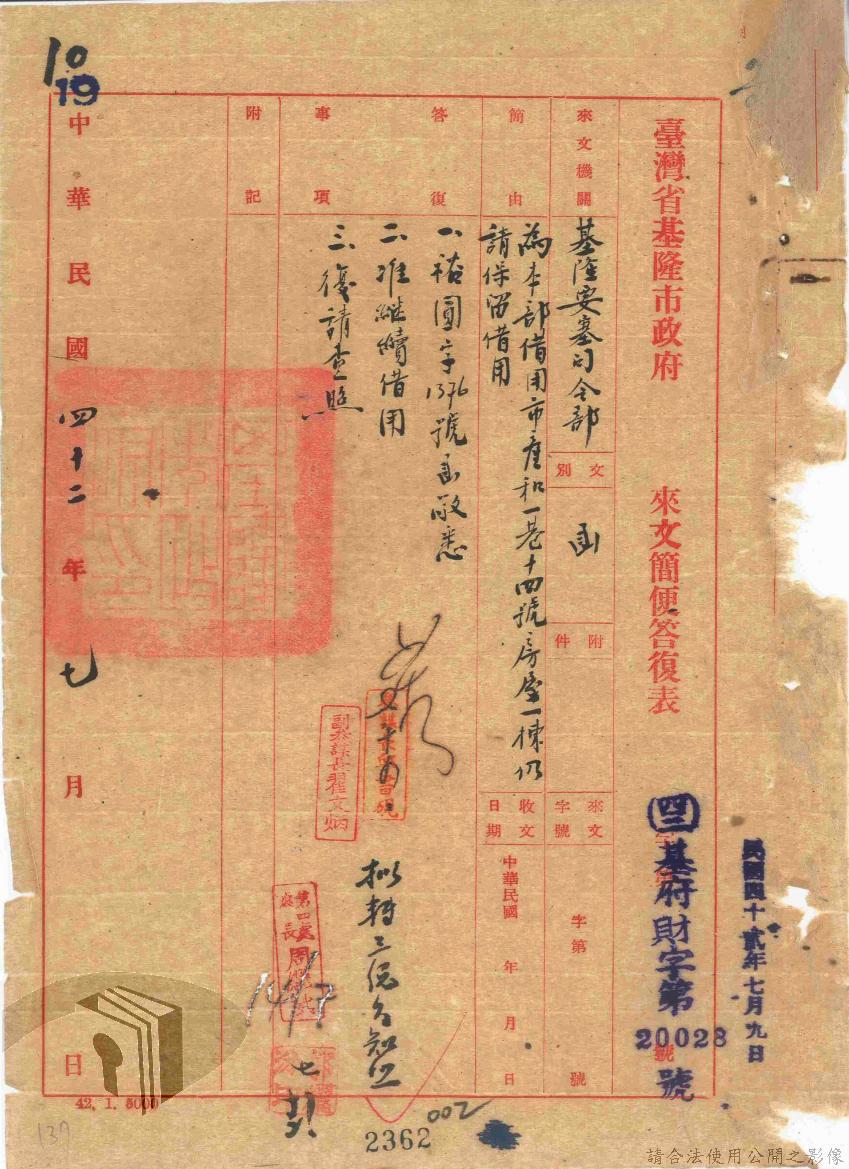 臺灣省基隆市政府 來文簡便答復表
民國四十貳年七月九日
四二基府財字第20028號
來文機關
基隆要塞司令部
文別
函
附件
來文字號
字第
號
簡由
為本部借用市產和一巷十四號房屋一棟仍
請保留借用
收文日期
中華民國 年 月 日
答復事項
一、裕圓字1376號函敬悉
二、准繼續借用
三、復請查照
副參謀長翟文炳
第四處
處長周
14/7
附記
中華民國四十二年七月 日
10
19
42. 1. 5000
137
2362
002
請合法使用公開之影像